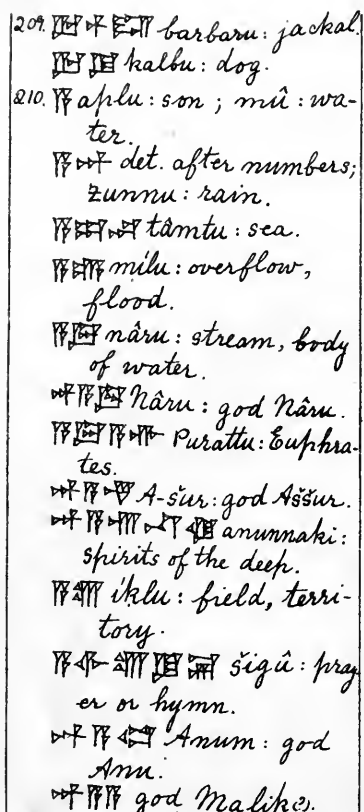 209. 𒌨 𒁇 𒊏 barbaru: jackal.
𒌨 𒆪 kalbu: dog.
210. 𒀀 aplu: son; mû: wa-
ter.
𒀀𒀭 det. after numbers;
zunnu: rain.
𒀀𒀊𒁀 tâmtu: sea.
𒀀 mílu: overflow,
flood.
𒀀𒇉 nâru: stream, body
of water.
𒀭𒀀𒇉 Nâru: god Nâru.
𒀀 𒀀 Purattu: Euphra-
tes.
𒀭𒀀 A-šur: god Aššur.
𒀭𒀀 anunnaki:
spirits of the deep.
𒀀𒊮 iklu: field, terri-
tory.
𒀀 šigû: pray
er or hymn.
𒀭𒀀 Anum: god
Anu.
𒀭𒀀 god Malik(?).